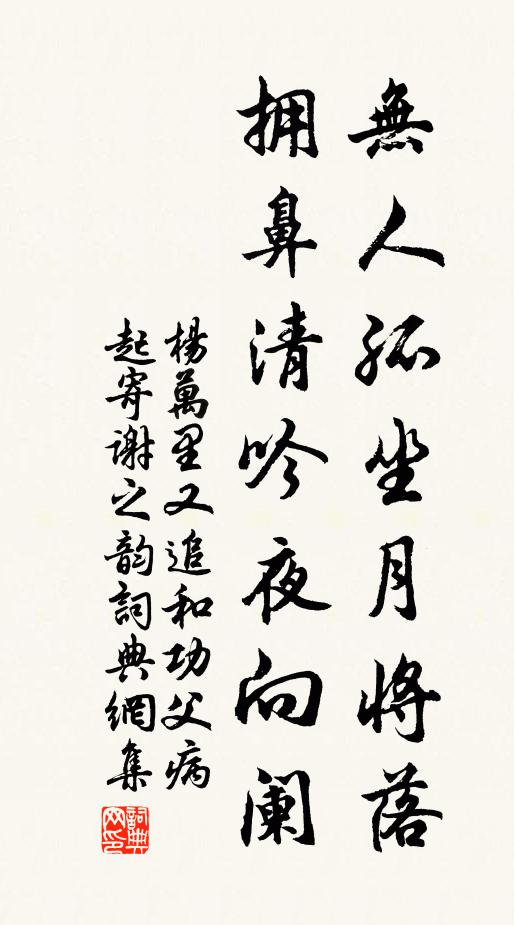 無人孤坐月將落
拥鼻清吟夜向阑
楊萬里又追和功父病
起寄謝之韵詞典網集
詞典网印